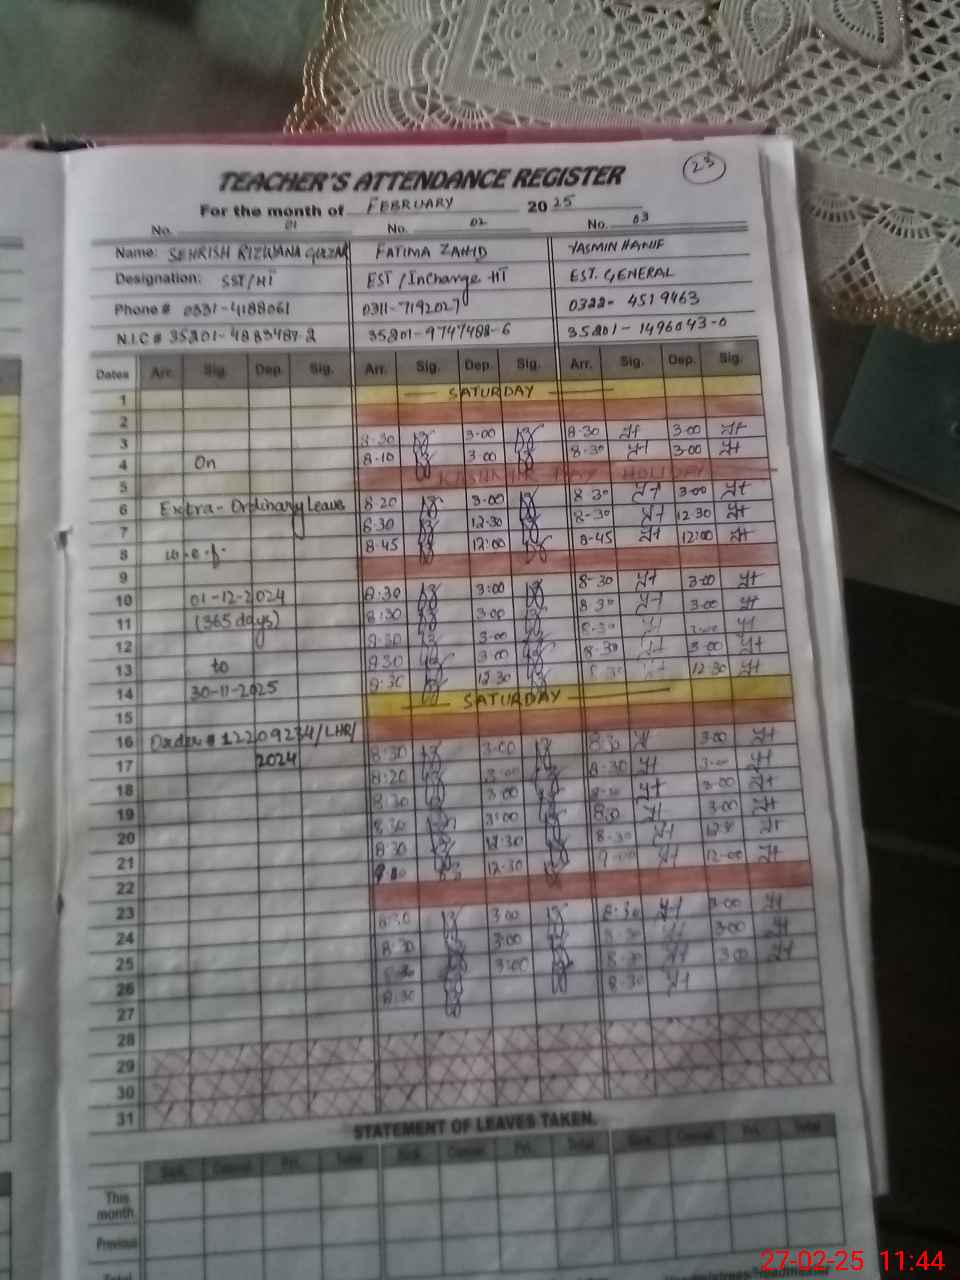 23
TEACHER'S ATTENDANCE REGISTER
For the month of FEBRUARY 2025
No. 01 No. 02 No. 03
Name: SEHRISH RIZWANA GULZAR FATIMA ZAHID YASMIN HANIF
Designation: SST/HT EST/Incharge HT EST. GENERAL
Phone # 0331-4188061 0311-7192027 0322-4519463
N.I.C # 35201-4883487-2 35201-9747488-6 35201-1496043-0
Dates Arr. Sig. Dep. Sig. Arr. Sig. Dep. Sig. Arr. Sig. Dep. Sig.
1 SATURDAY
2
3 8-30 3-00 8-30 3-00
4 On 8-10 3-00 8-30 3-00
5 KASHMIR DAY HOLIDAY
6 Extra-Ordinary Leave 8-20 3-00 8-30 3-00
7 8-30 12-30 8-30 12-30
8 w.e.f. 8-45 12:00 8-45 12:00
9
10 01-12-2024 8:30 3:00 8-30 3-00
11 (365 days) 8:30 3:00 8-30 3-00
12 8-30 3-00 8-30
13 to 8:30 3:00 8-30 3-00
14 30-11-2025 8-30 12-30 8-30 12-30
15 SATURDAY
16 Order # 12209234/LHR/
17 2024 8:30 3-00 8-30 3-00
18 8:20 3-00 8-30 3-00
19 8:30 3-00 8-30 3-00
20 8:30 3:00 3-00
21 8:30 12:30 8-30
22 12-30 9-00 12-00
23
24 8:30 3:00 8-30 3-00
25 8-30 3:00 8-30 3-00
26 8-30 3:00 8-30 3-00
27 8:30 8-30
28
29
30
31
STATEMENT OF LEAVES TAKEN.
Sick. Casual. Pri. Total Sick. Casual. Pri. Total Sick. Casual. Pri. Total
This month.
Previous
Total
27-02-25 11:44